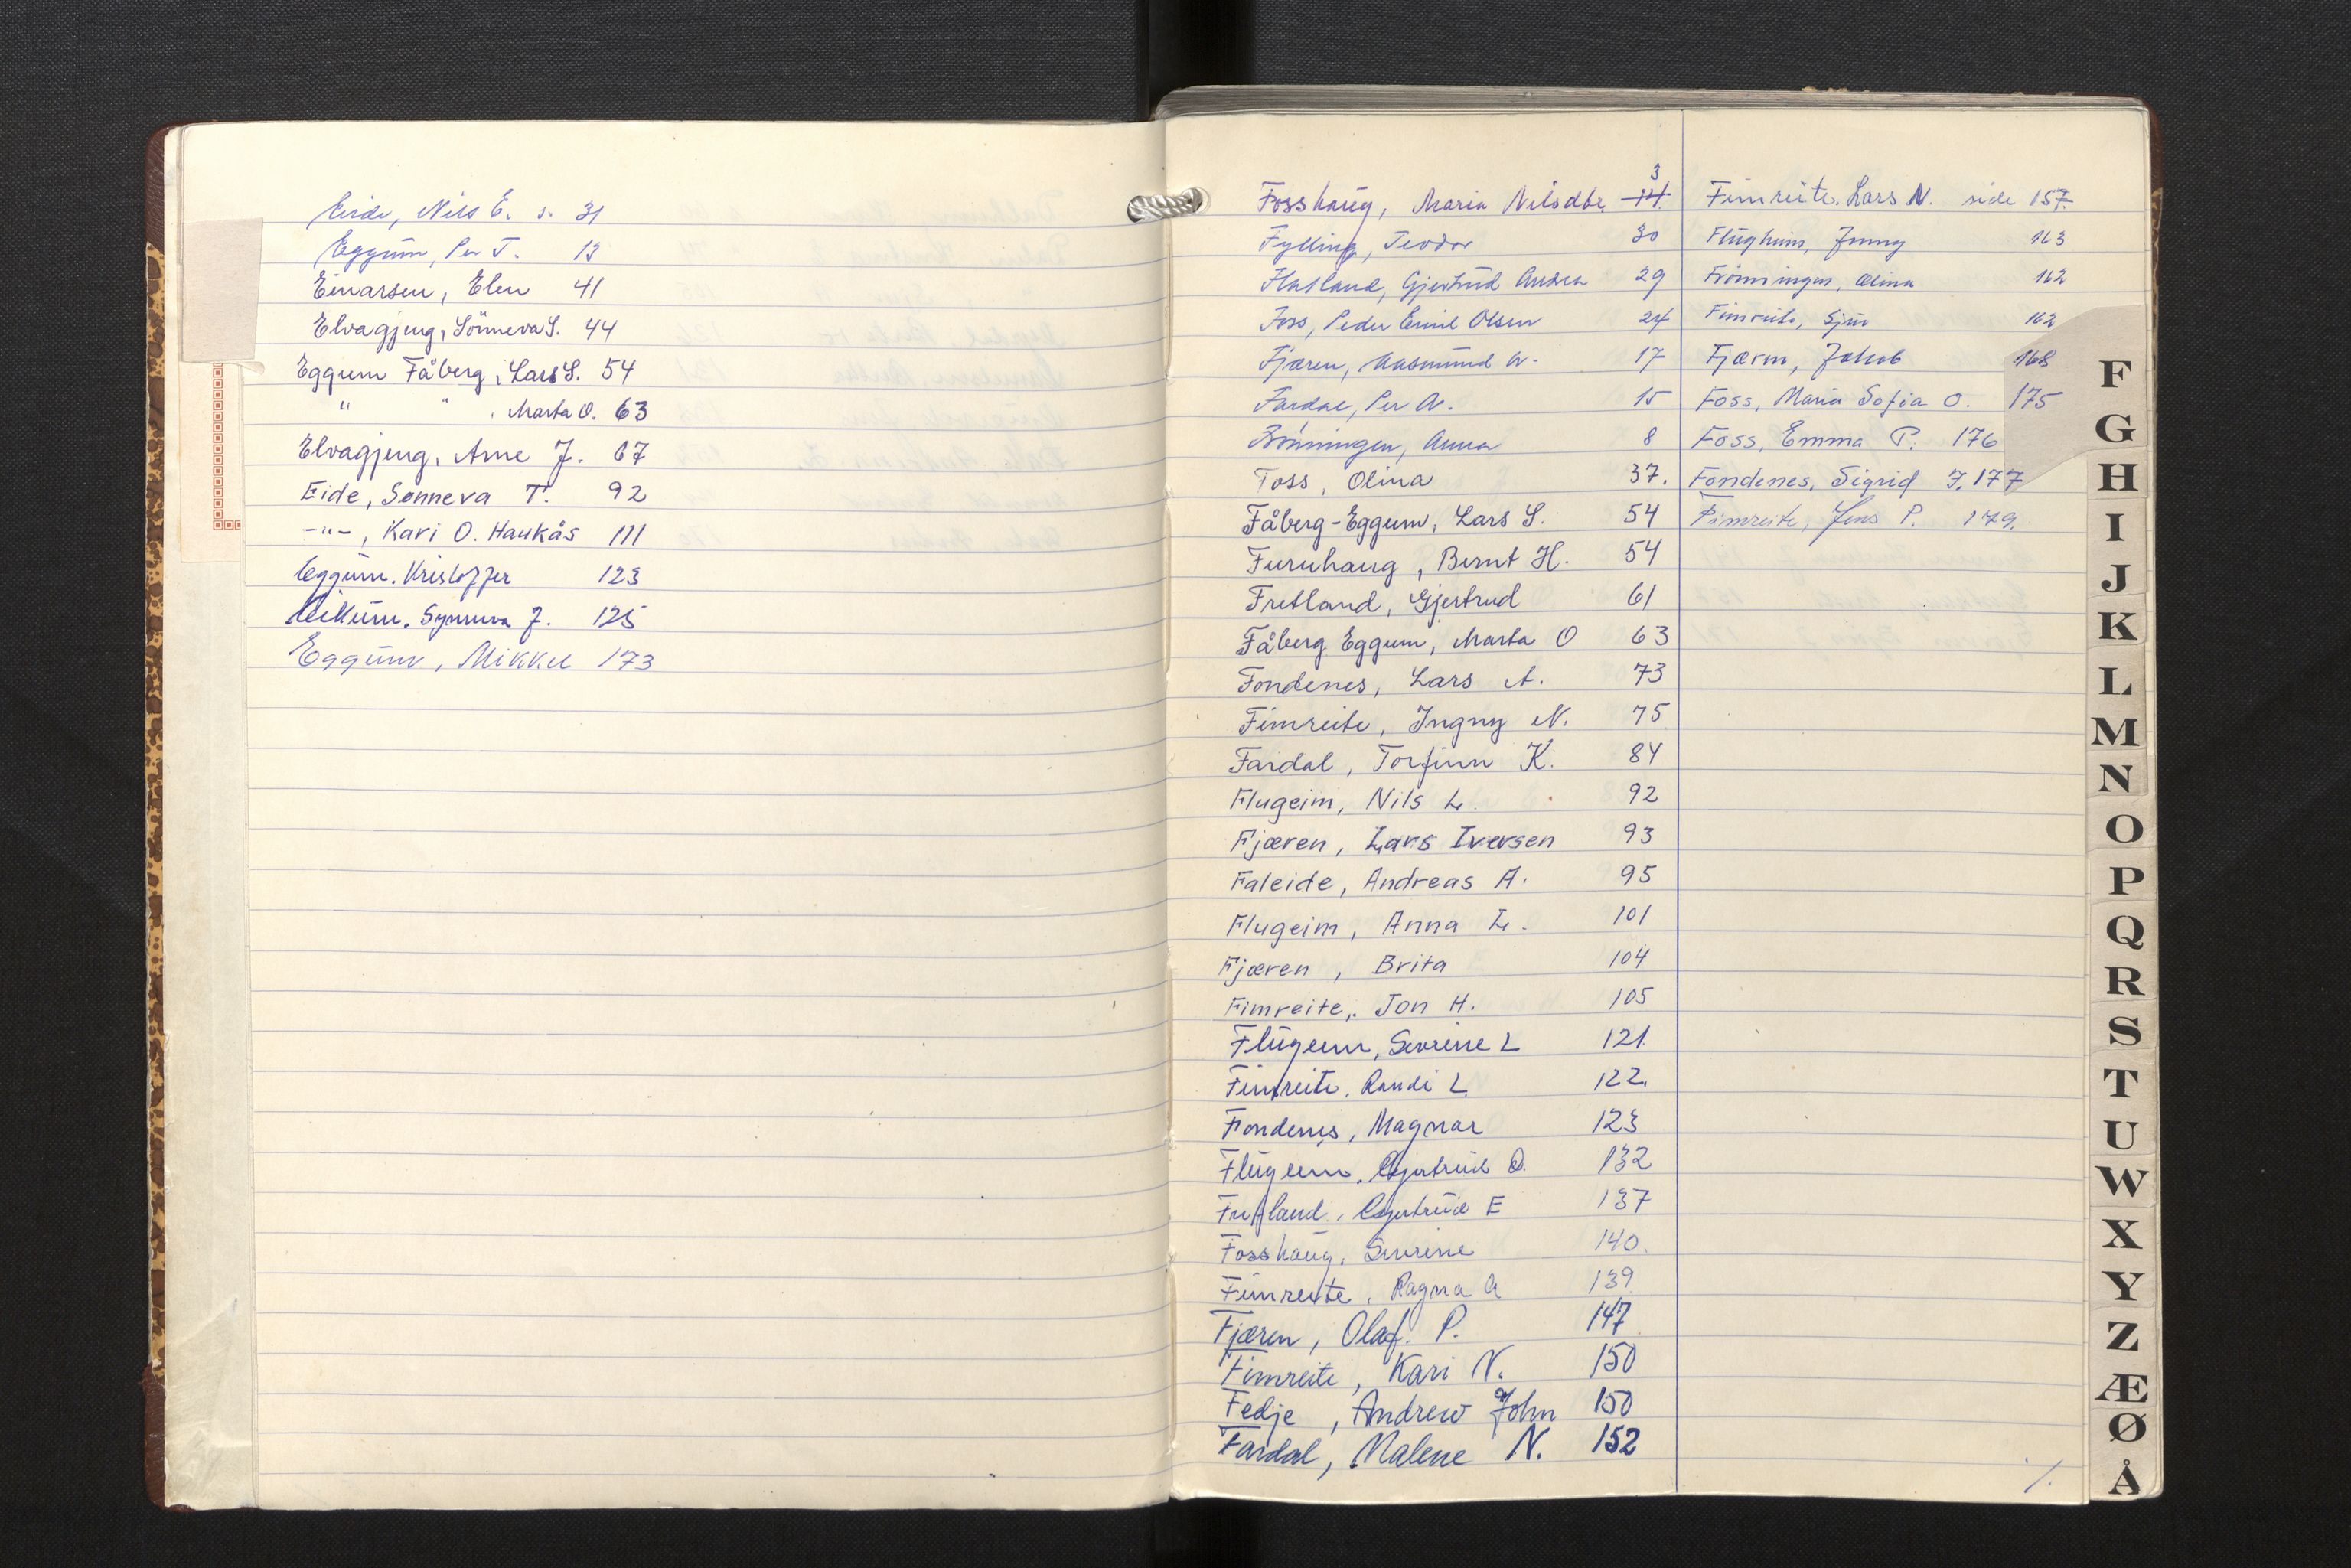 Eide, Nils E. s. 31
Eggum, Per T. 13
Einarsen, Elen 41
Elvagjeng, Sönneva S. 44
Eggum Fåberg, Lars S. 54
" " , Marta O. 63
Elvagjeng, Arne J. 67
Eide, Sønneva T. 92
-"-, Kari O. Haukås 111
Eggum. Kristoffer 123
Synneva J. 125
Eggum, Mikkel 173
Fosshaug, Maria Nilsdtr. 14. 3
Fylling, Teodor 30
Flatland, Gjertrud Andrea 29
Foss, Peder Emil Olsen 24
Fjæren, Aasmund A. 17
Fardal, Per A. 15
Anna 8
Foss, Olina 37.
Fåberg-Eggum, Lars S. 54
Furuhaug, Bernt H. 54
Fretland, Gjertrud 61
Fåberg Eggum, Marta O 63
Fondenes, Lars A. 73
Fimreite, Ingny N. 75
Fardal, Torfinn K. 84
Flugeim, Nils L. 92
Fjæren, Lars Iversen 93
Faleide, Andreas A. 95
Flugeim, Anna L. 101
Fjæren, Brita 104
Fimreite, Jon H. 105
Flugeim, Severine L 121.
Fimreite. Randi L 122.
Fondenes, Magnar 123
Flugeim. Gjertrud O. 132
Fretland, Gjertrud E 137
Fosshaug, Severine 140.
Fimreite, Ragna A 139
Fjæren, Olaf. P. 147
Fimreite, Kari N. 150
Fedje, Andrew John 150
Fardal, Malene N. 152
Fimreite, Lars N. side 157.
Flugheim, Jenny 163
Frönningen, Olina 162
Fimreite, Sjur 162
Fjærm, Jakob 168
Foss, Maria Sofia O. 175
Foss, Emma P. 176
Fondenes, Sigrid J. 177
Fimreite, Jens P. 179.
F
G
H
I
J
K
L
M
N
O
P
Q
R
S
T
U
W
X
Y
Z
Æ
Ø
Å